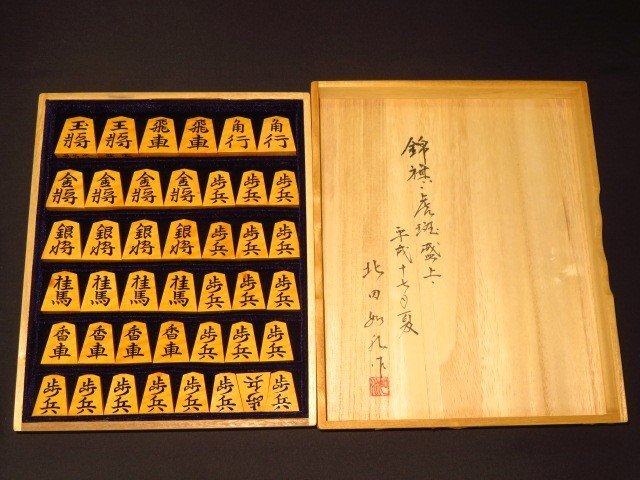 玉将 王将 飛車 飛車 角行 角行
金将 金将 金将 金将 歩兵 歩兵 歩兵
銀将 銀将 銀将 銀将 歩兵 歩兵 歩兵
桂馬 桂馬 桂馬 桂馬 歩兵 歩兵 歩兵
香車 香車 香車 香車 歩兵 歩兵 歩兵
歩兵 歩兵 歩兵 歩兵 歩兵 歩兵 歩兵 歩兵
錦旗、虎斑盛上、
平成十七年夏
北田 作